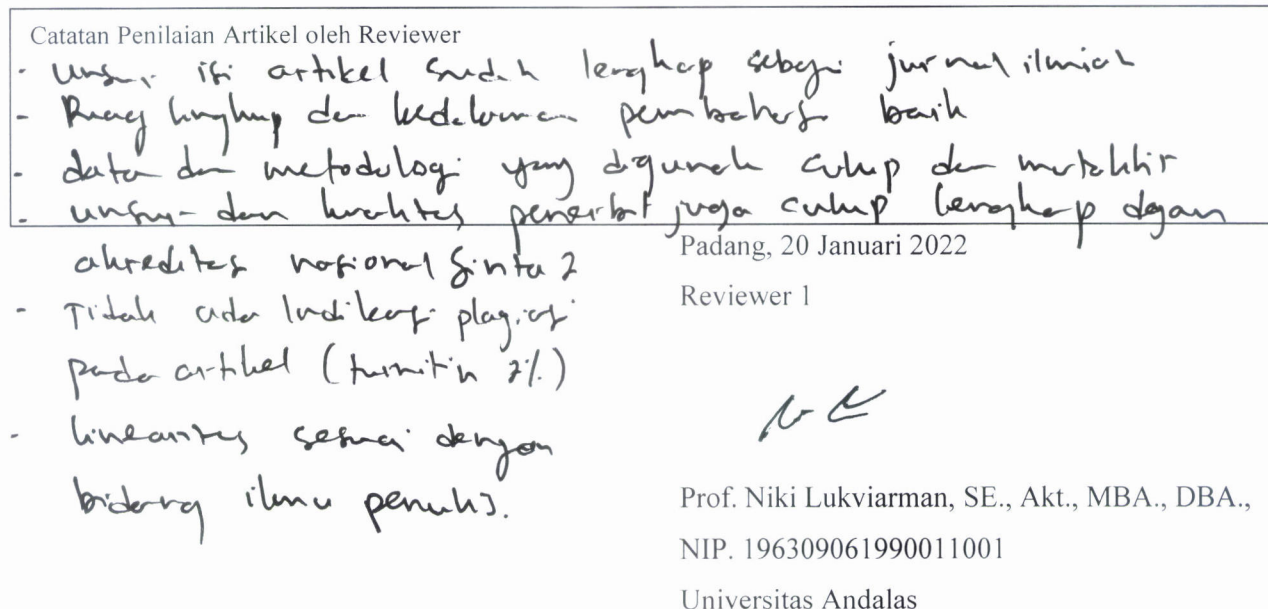 Catatan Penilaian Artikel oleh Reviewer
- Unsur isi artikel sudah lengkap sebagai jurnal ilmiah
- Ruang lingkup dan kedalaman pembahasan baik
- data dan metodologi yang digunakan cukup dan mutakhir
- unsur dan kualitas penerbit juga cukup lengkap dengan
akreditas nasional Sinta 2
- Tidak ada Indikasi plagiasi
pada artikel (turnitin %)
- linearitas sesuai dengan
bidang ilmu penulis.
Padang, 20 Januari 2022
Reviewer 1
Prof. Niki Lukviarman, SE., Akt., MBA., DBA.,
NIP. 196309061990011001
Universitas Andalas